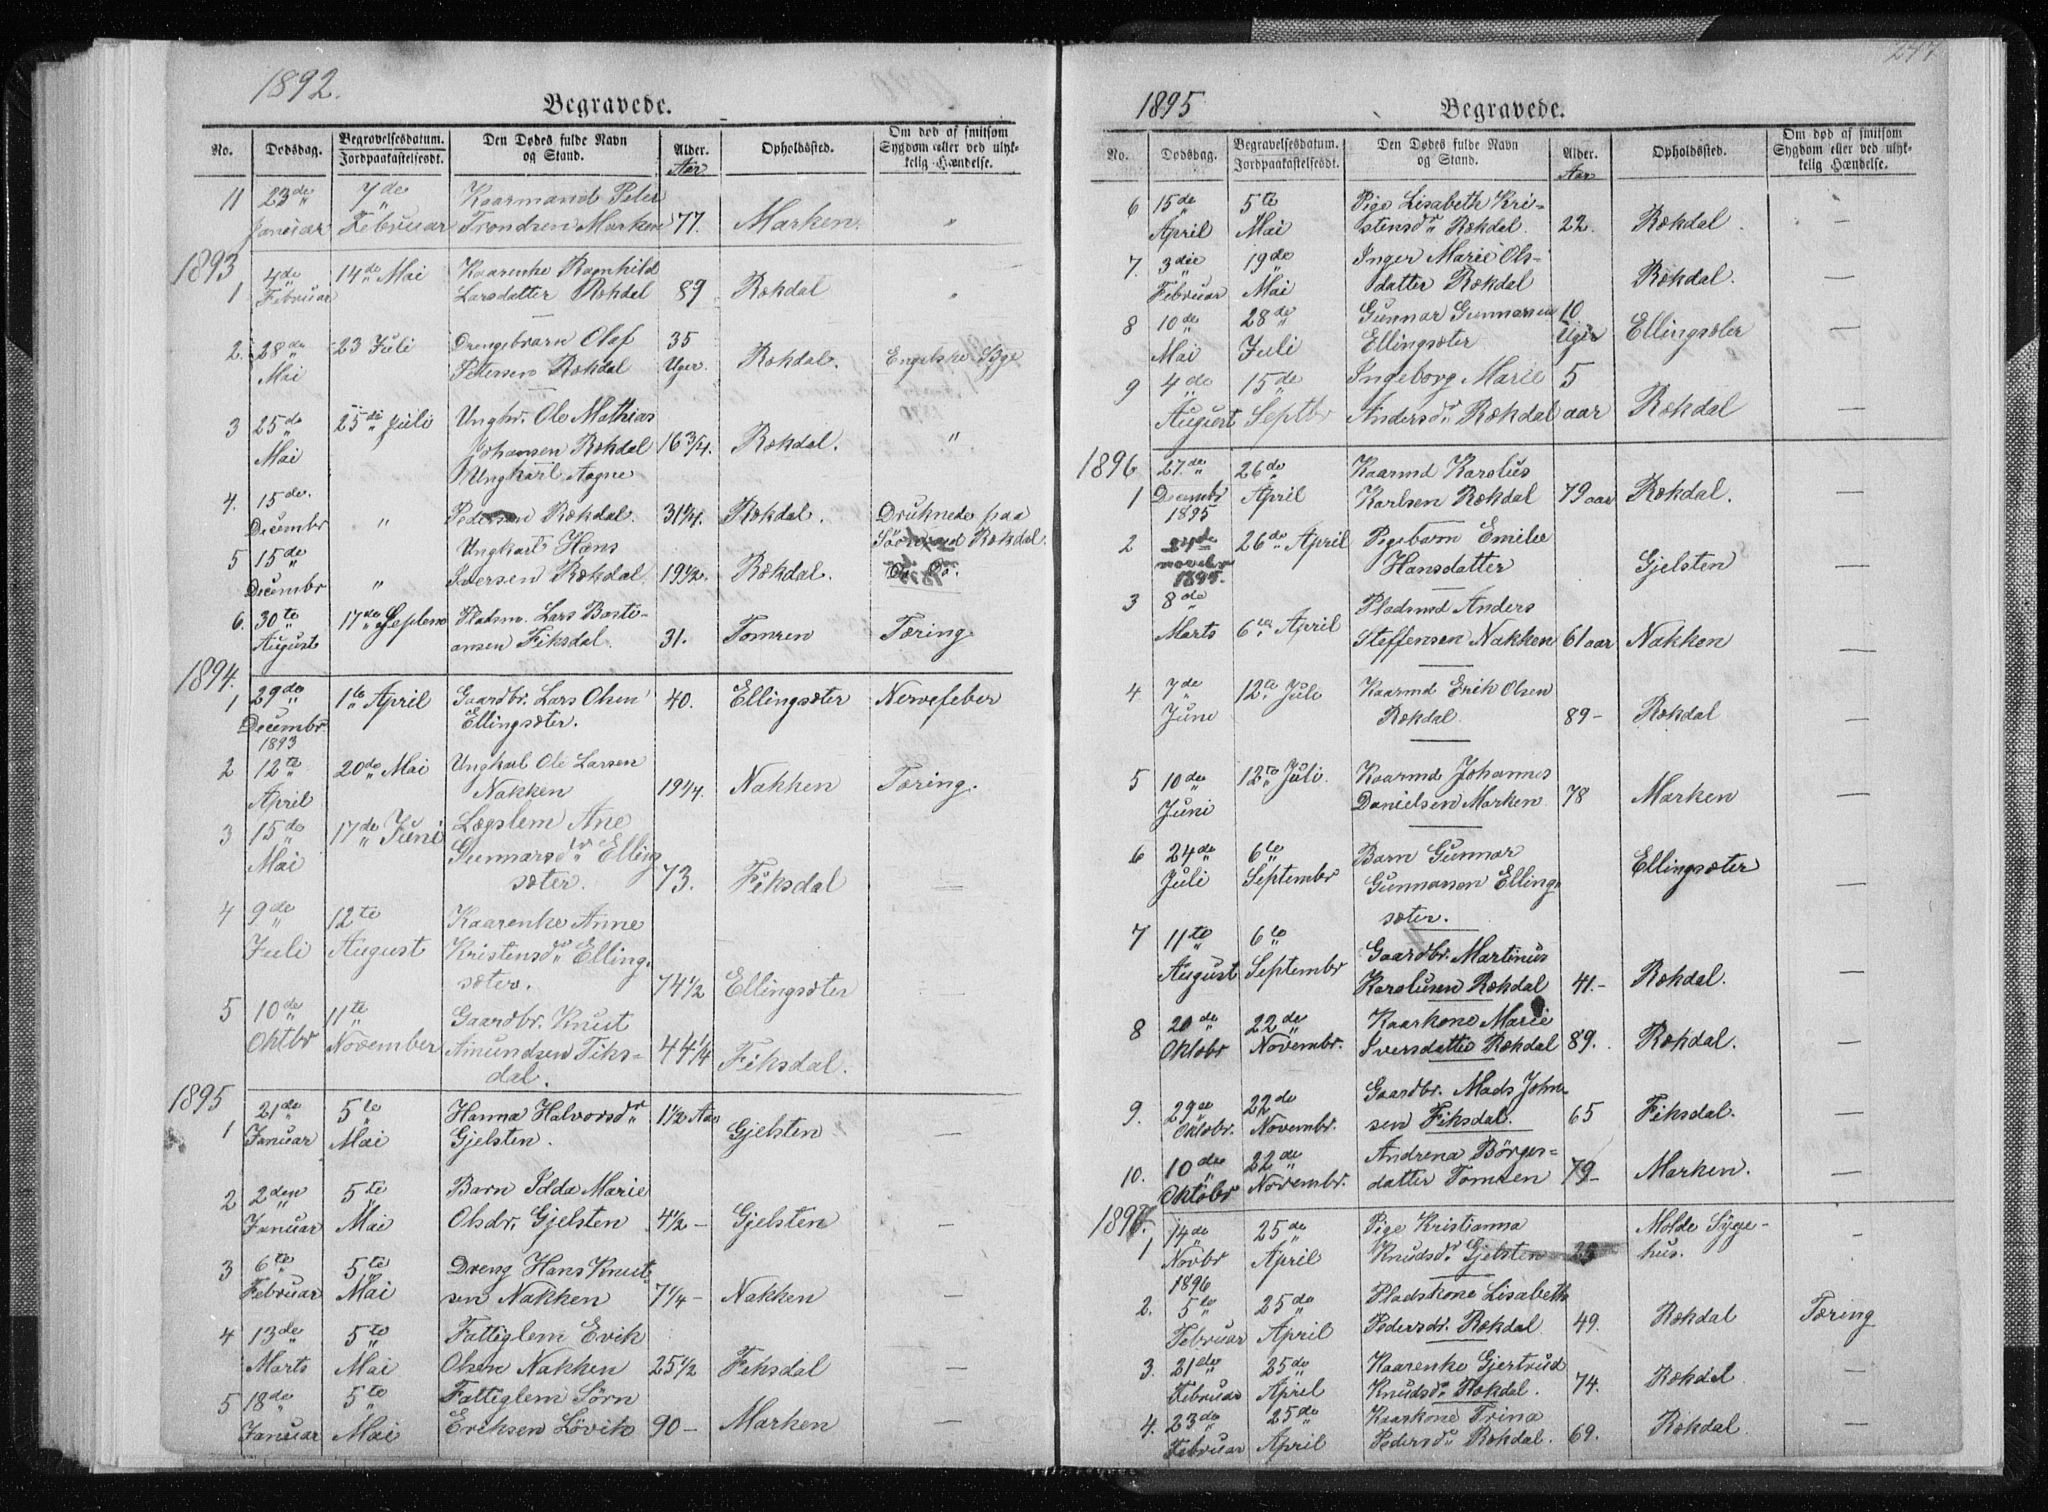 1892.
Begravede.
No. Dødsdag. Begravelsesdatum. Jordpaakastelsesdt. Den Dødes fulde Navn og Stand. Alder. Aar Opholdssted. Om død af smitsom Sygdom eller ved ulykkelig Hændelse.
11 23de 7de Kaarmand Peter
Januar Februar Trondsen Marken 77. Marken. "
1893
1 4de 14de Mai Kaarenke Ramhild
Februar Larsdatter Rekdal 89 Rekdal "
2. 28de 23 Juli Drengebarn Olaf 35
Mai Petersen Rekdal Uger. Rekdal. Engelske Syge
3 25de 25de Juli Ungkr. Ole Mathias
Mai Johansen Rekdal 16 3/4. Rekdal. "
Ungkarl Aagne
4. 15de
Decembr " Pedersen Rekdal. 31 1/4. Rekdal. Druknede paa
Rekdal.
5 15de Ungkarl Hans
Decembr " Iversen Rekdal 19 1/2. Rekdal. Do Do.
6. 30te 17de Septem Pladsm. Lars Basti-
August ansen Fiksdal. 31. Tomren Tæring.
1894.
1 29de 1te April Gaardbr. Lars Olsen 40. Ellingsæter Nervefeber
Decembr Ellingsæter.
1893
2 12te 20de Mai Ungkarl Ole Larsen
April Nakken 19 1/4 Nakken Tæring.
3 15de 17de Juni Lægslem Ane
Mai Gunnarsdtr Elling
sæter. 73. Fiksdal —
4 9de 12te Kaarenke Anne
Juli August Kristensdr Elling-
sæter. 74 1/2 Ellingsæter —
5 10de 11te Gaardbr. Knut
Oktbr November Amundsen Fiks- 44 1/4 Fiksdal. —
dal.
1895
1 21de 5te Hanna Halvorsdr 1 1/2 Aar
Januar Mai Gjelsten. Gjelsten —
2 2den 5te Barn Idda Marie
Januar Mai Olsdr. Gjelsten 4 1/2 — Gjelsten —
3 6te 5te Dreng Hans Knut-
Februar Mai sen Nakken 7 1/4 — Nakken —
4 13de 5te Fattiglem Erik
Marts Mai Olsen Nakken 25 1/2 Fiksdal —
5 18de 5te Fattiglem Sörn
Januar Mai Eriksen Lövik 90 — Marken —
247
1895
Begravede.
No. Dødsdag. Begravelsesdatum. Jordpaakastelsesdt. Den Dødes fulde Navn og Stand. Alder. Aar Opholdssted. Om død af smitsom Sygdom eller ved ulykkelig Hændelse.
6 15de 5te Pige Lisabeth Kri-
April Mai stensdr Rekdal. 22. Rekdal. —
7. 3die 19de Inger Marie Ols-
Februar Mai datter Rekdal Rekdal. —
8 10de 28de Gunnar Gunnarsen 10
Mai Juli Ellingsæter Uger Ellingsæter —
9 4de 15de Ingeborg Marie 5
August Septbr Andersdr Rekdal aar Rekdal —
1896 27de 26de Kaarmd Karolus
1 Decembr April Karlsen Rekdal 79 aar Rekdal. —
1895
2 26de April Pigebarn Emilie
novebr Hansdatter Gjelsten —
1895.
3 8de Pladsmd Anders
Marts 6te April Steffensen Nakken 61 aar Nakken —
4 7de 12te Juli Kaarmd Erik Olsen
Juni Rekdal 89 — Rekdal —
5 10de 12te Juli Kaarmd Johannes
Juni Danielsen Marken 78 Marken —
6 24de 6te Barn Gunnar Ellingsæter
Juli Septembr Gunnarsen Elling- —
sæter.
7 11te 6te Gaardbr. Martinus
August Septembr Karolusen Rekdal 41. — Rekdal. —
8 20de 22de Kaarkone Marie
Oktobr Novembr. Iversdatter Rekdal 89. Rekdal. —
9. 29de 22de Gaardbr. Mads John-
Oktobr. Novembr. sen Fiksdal. 65 Fiksdal. —
10. 10de 22de Andrena Börges-
Oktobr Novembr. datter Tomren 79 — Marken. —
1897.
1 14de 25de Pige Kristianna Molde Syge-
Novbr April Knudsdr Gjelsten hus. —
1896
2. 5te 25de Pladskone Lisabeth
Februar April Pedersdr. Rekdal 49. Rekdal Tæring
3. 21de 25de Kaarenke Gjertrud
Februar April Knudsdr Rekdal. 74. Rekdal —
4. 23de 25de Kaarkone Trina
Februar April Pedersdr Rekdal. 69. Rekdal —